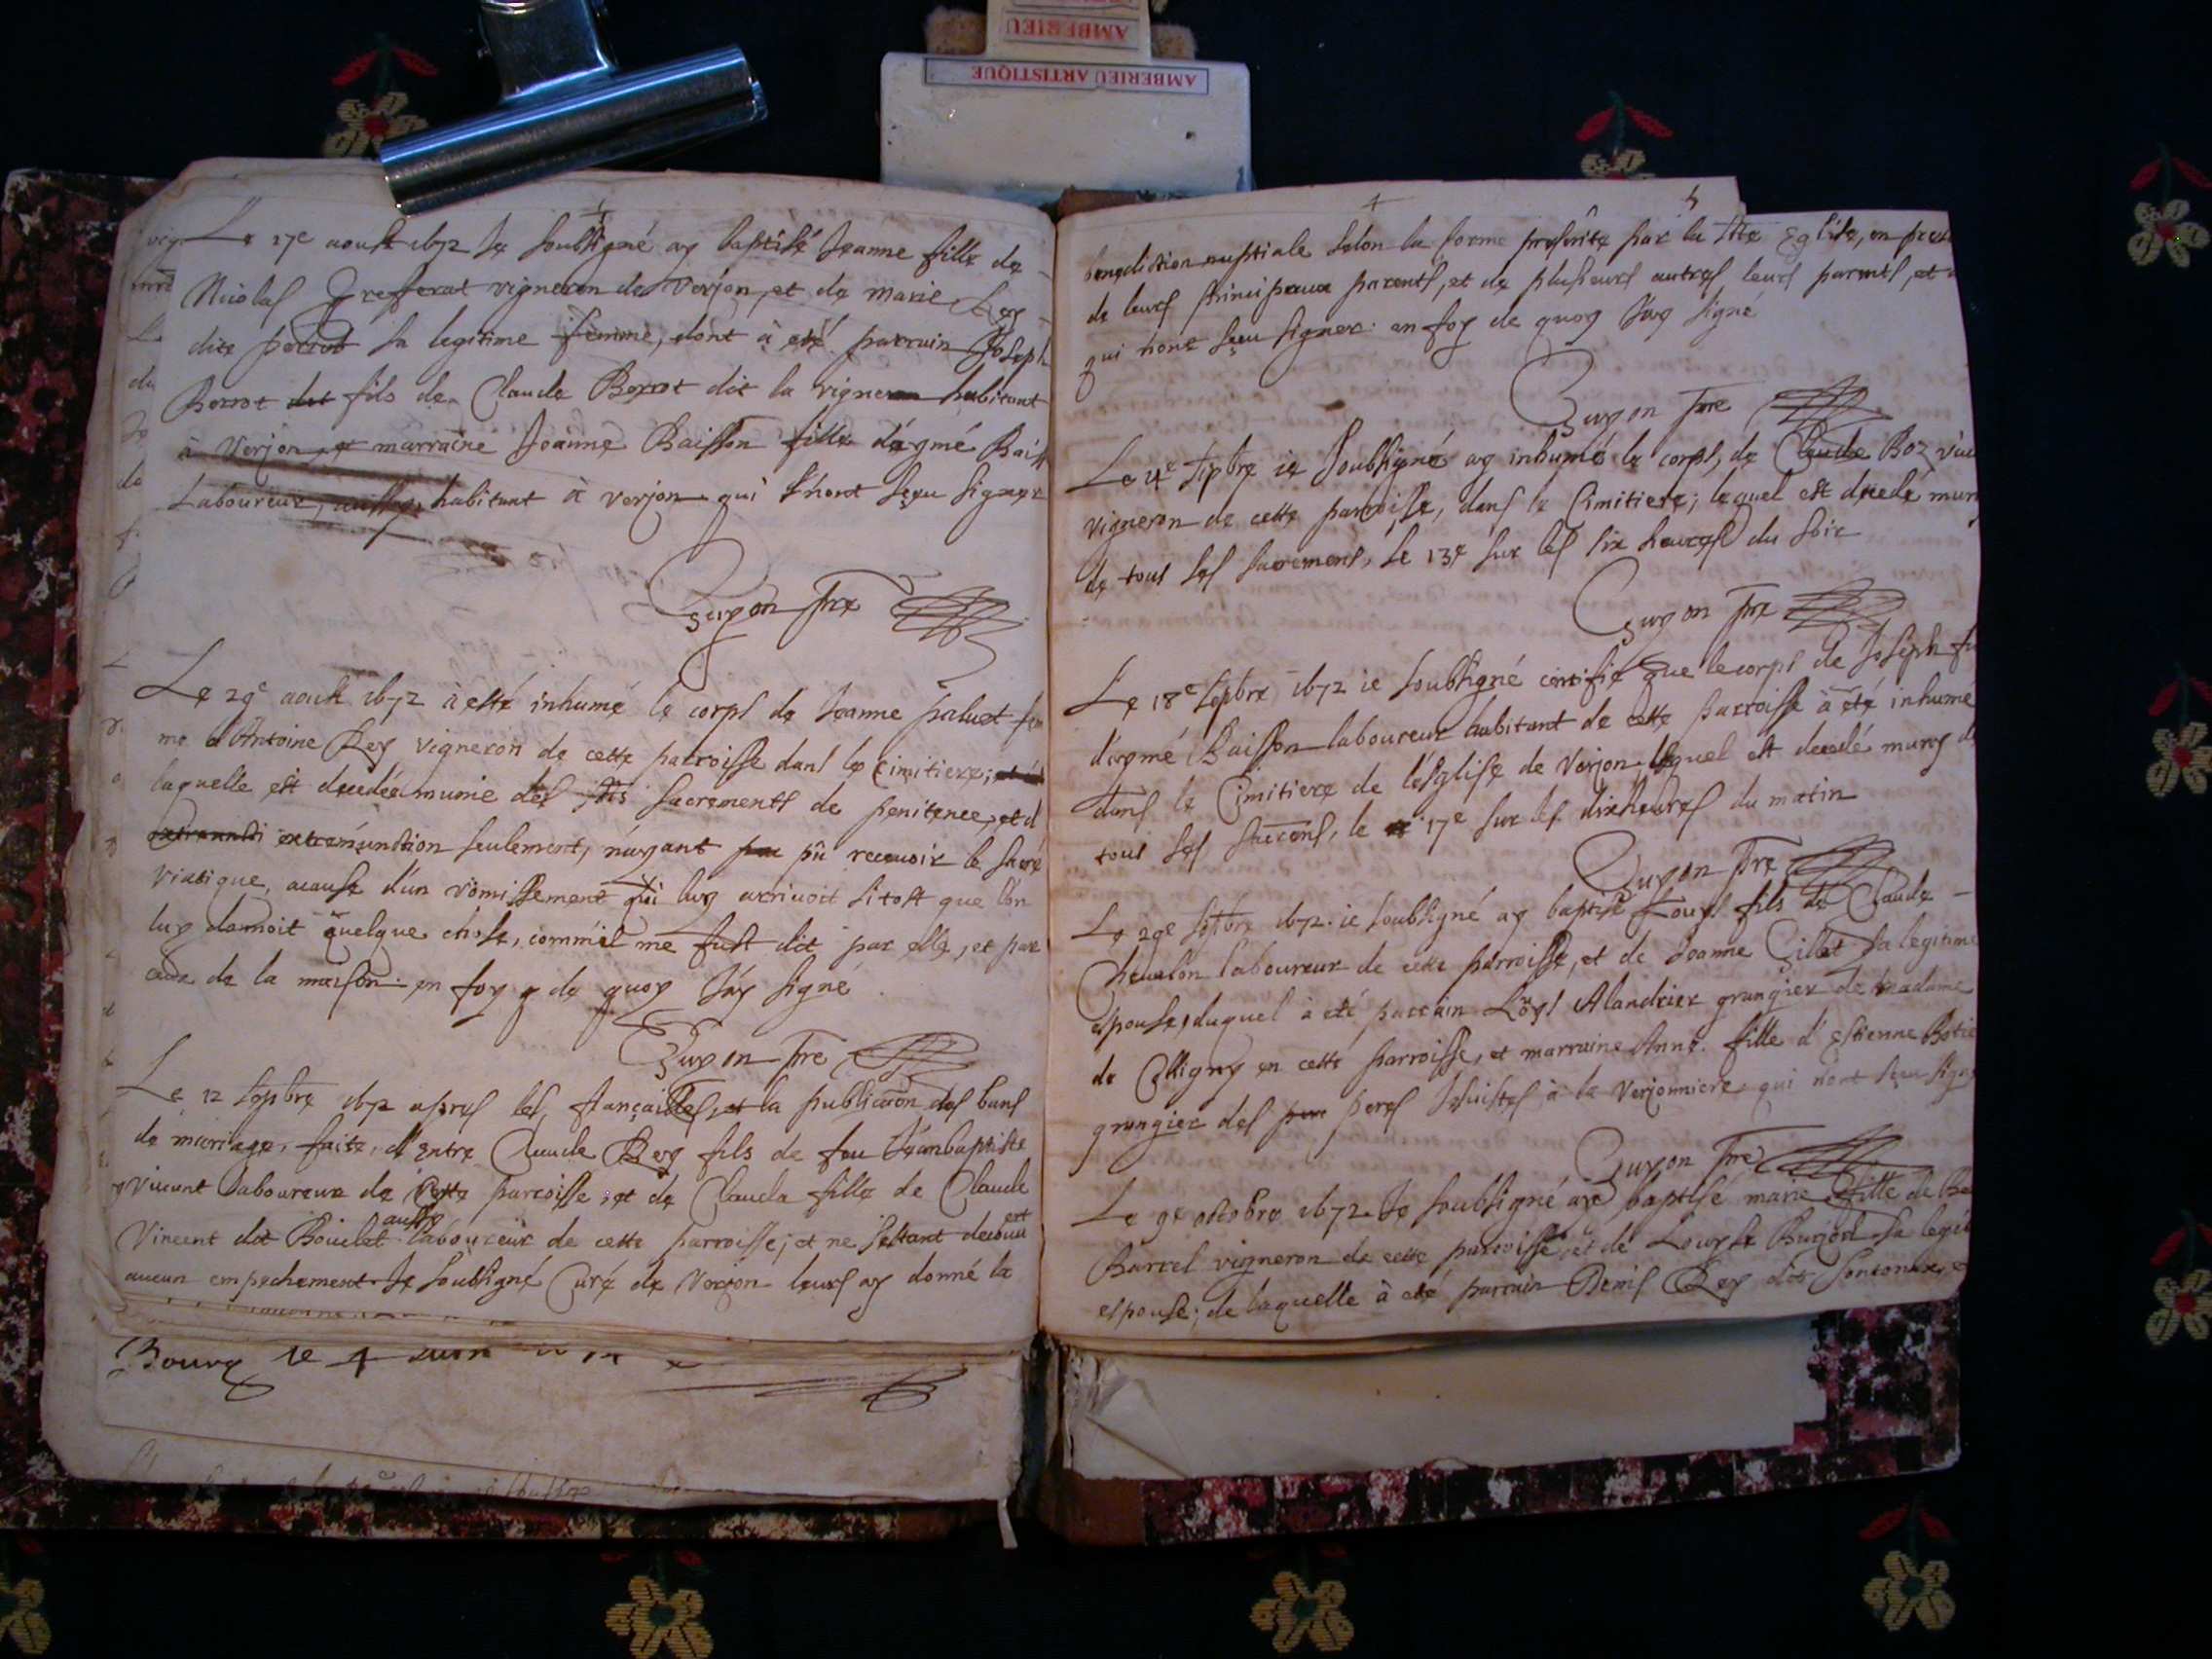 AMBERIEU
AMBERIEU ARTISTIQUE
Le 17e aoust 1672 Je soubsigné ay baptisé Jeanne fille de
Nicolas Grefferat vigneron de Verjon, et de marie Rey
dite perrot sa legitime femme, dont à eté parrain Joseph
Borrot dit fils de Claude Borrot dit la vigneron habitant
à Verjon, et marraine Jeanne Baisson fille d'aymé Baiss
Laboureur, aussy habitant à verjon qui n'hont sçeu signer
Guyon pre
Le 29e aoust 1672 à esté inhumé le corps de Jeanne paluet fem
me d'Antoine Rey vigneron de cette parroisse dans le Cimitiere;
laquelle est decedée munie des sts sacrements de penitence, et d
extremunction seulement, n'ayant pû recevoir le sacré
viatique, acause d'un vomissement qui luy arrivoit sitost que l'on
luy donnoit quelque chose, comm'il me fust dit par elle, et par
ceux de la maison. en foy de quoy J'ay signé
Guyon pre
Le 12 sepbre 1672 apres les fiançailles, et la publicaõn des bans
de mariage, faite, d'Entre Claude Rey fils de feu Jeanbaptiste
vivant Laboureur de cette parroisse, et de Clauda fille de Claude
Vincent dit Bouclet aussy laboureur de cette parroisse; et ne s'estant decouvert
aucun empechement Je soubsigné Curé de Verjon leurs ay donné la
Bourg le 4 Juin
4
5
benediction nuptiale selon la forme prescrite par la Ste Eglise, en prese
de leurs principaux parents, et de plusieurs autres leurs parents, et
qui n'ont sçeu signer. en foy de quoy J'ay signé
Guyon pre
Le 14e sepbre ie soubsigné ay inhumé le corps, de Claude Boz
vigneron de cette parroisse, dans le Cimitiere; lequel est decedé muny
de tous ses sacremens, le 13e sur les six heures du soir
Guyon pre
Le 18e sepbre 1672 ie soubsigné certifie que le corps de Joseph fi
d'aymé Baisson laboureur habitant de cette parroisse à eté inhumé
dans le Cimitiere de l'Esglise de Verjon, lequel est decedé muny de
tous ses sacrens, le 17e sur les dix heures du matin
Guyon pre
Le 29e sepbre 1672. ie soubsigné ay baptisé Louys fils de Claude
Chevalon laboureur de cette parroisse, et de Jeanne Gillet sa legitime
espouse, duquel à eté parrain Loys Alandrier grangier de madame
de Colligny en cette parroisse, et marraine Anne fille d'Estienne
grangier des peres Jesuistes à la Verjonniere, qui n'ont sçeu signe
Guyon pre
Le 9e octobre 1672. Je soubsigné aye baptisé marie fille de
Barrel vigneron de cette parroisse, et de Louyse Burjod sa legit
espouse; de laquelle à eté parrain Denis Rey dit